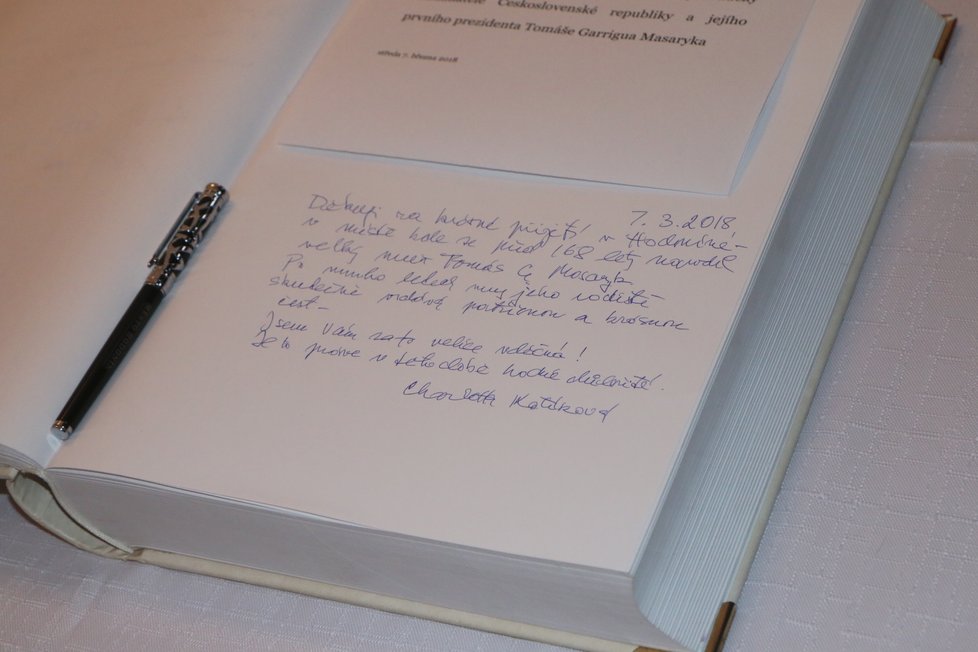 Československé republiky a jejího
prvního prezidenta Tomáše Garrigua Masaryka
středa 7. března 2018
7. 3. 2018
Děkuji za krásné přijetí v Hodoníně -
v místě kde se před 168 lety narodil
velký muž Tomáš G. Masaryk
Po mnoho mu jeho rodiště
skutečně vzdává poctivou a krásnou
čest -
Jsem Vám za to velice vděčná!
Je to právě v této době hodně důležité.
Charlotta Kotíková